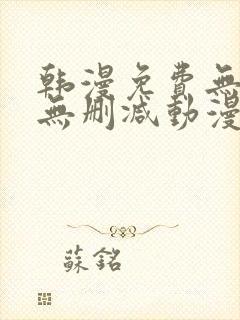 韩漫免費無
無删减動漫
蘇銘